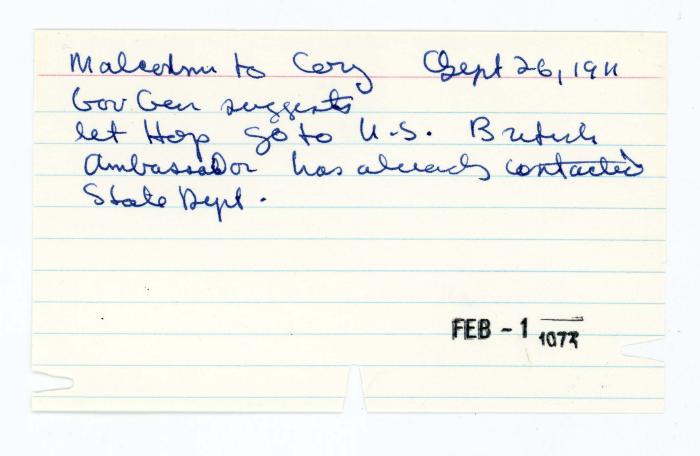 Malcolm to Cory Sept 26, 1911
Gov Gen suggests
let Hop go to U.S. British
Ambassador has already contacted
State Dept.
FEB - 1 1973